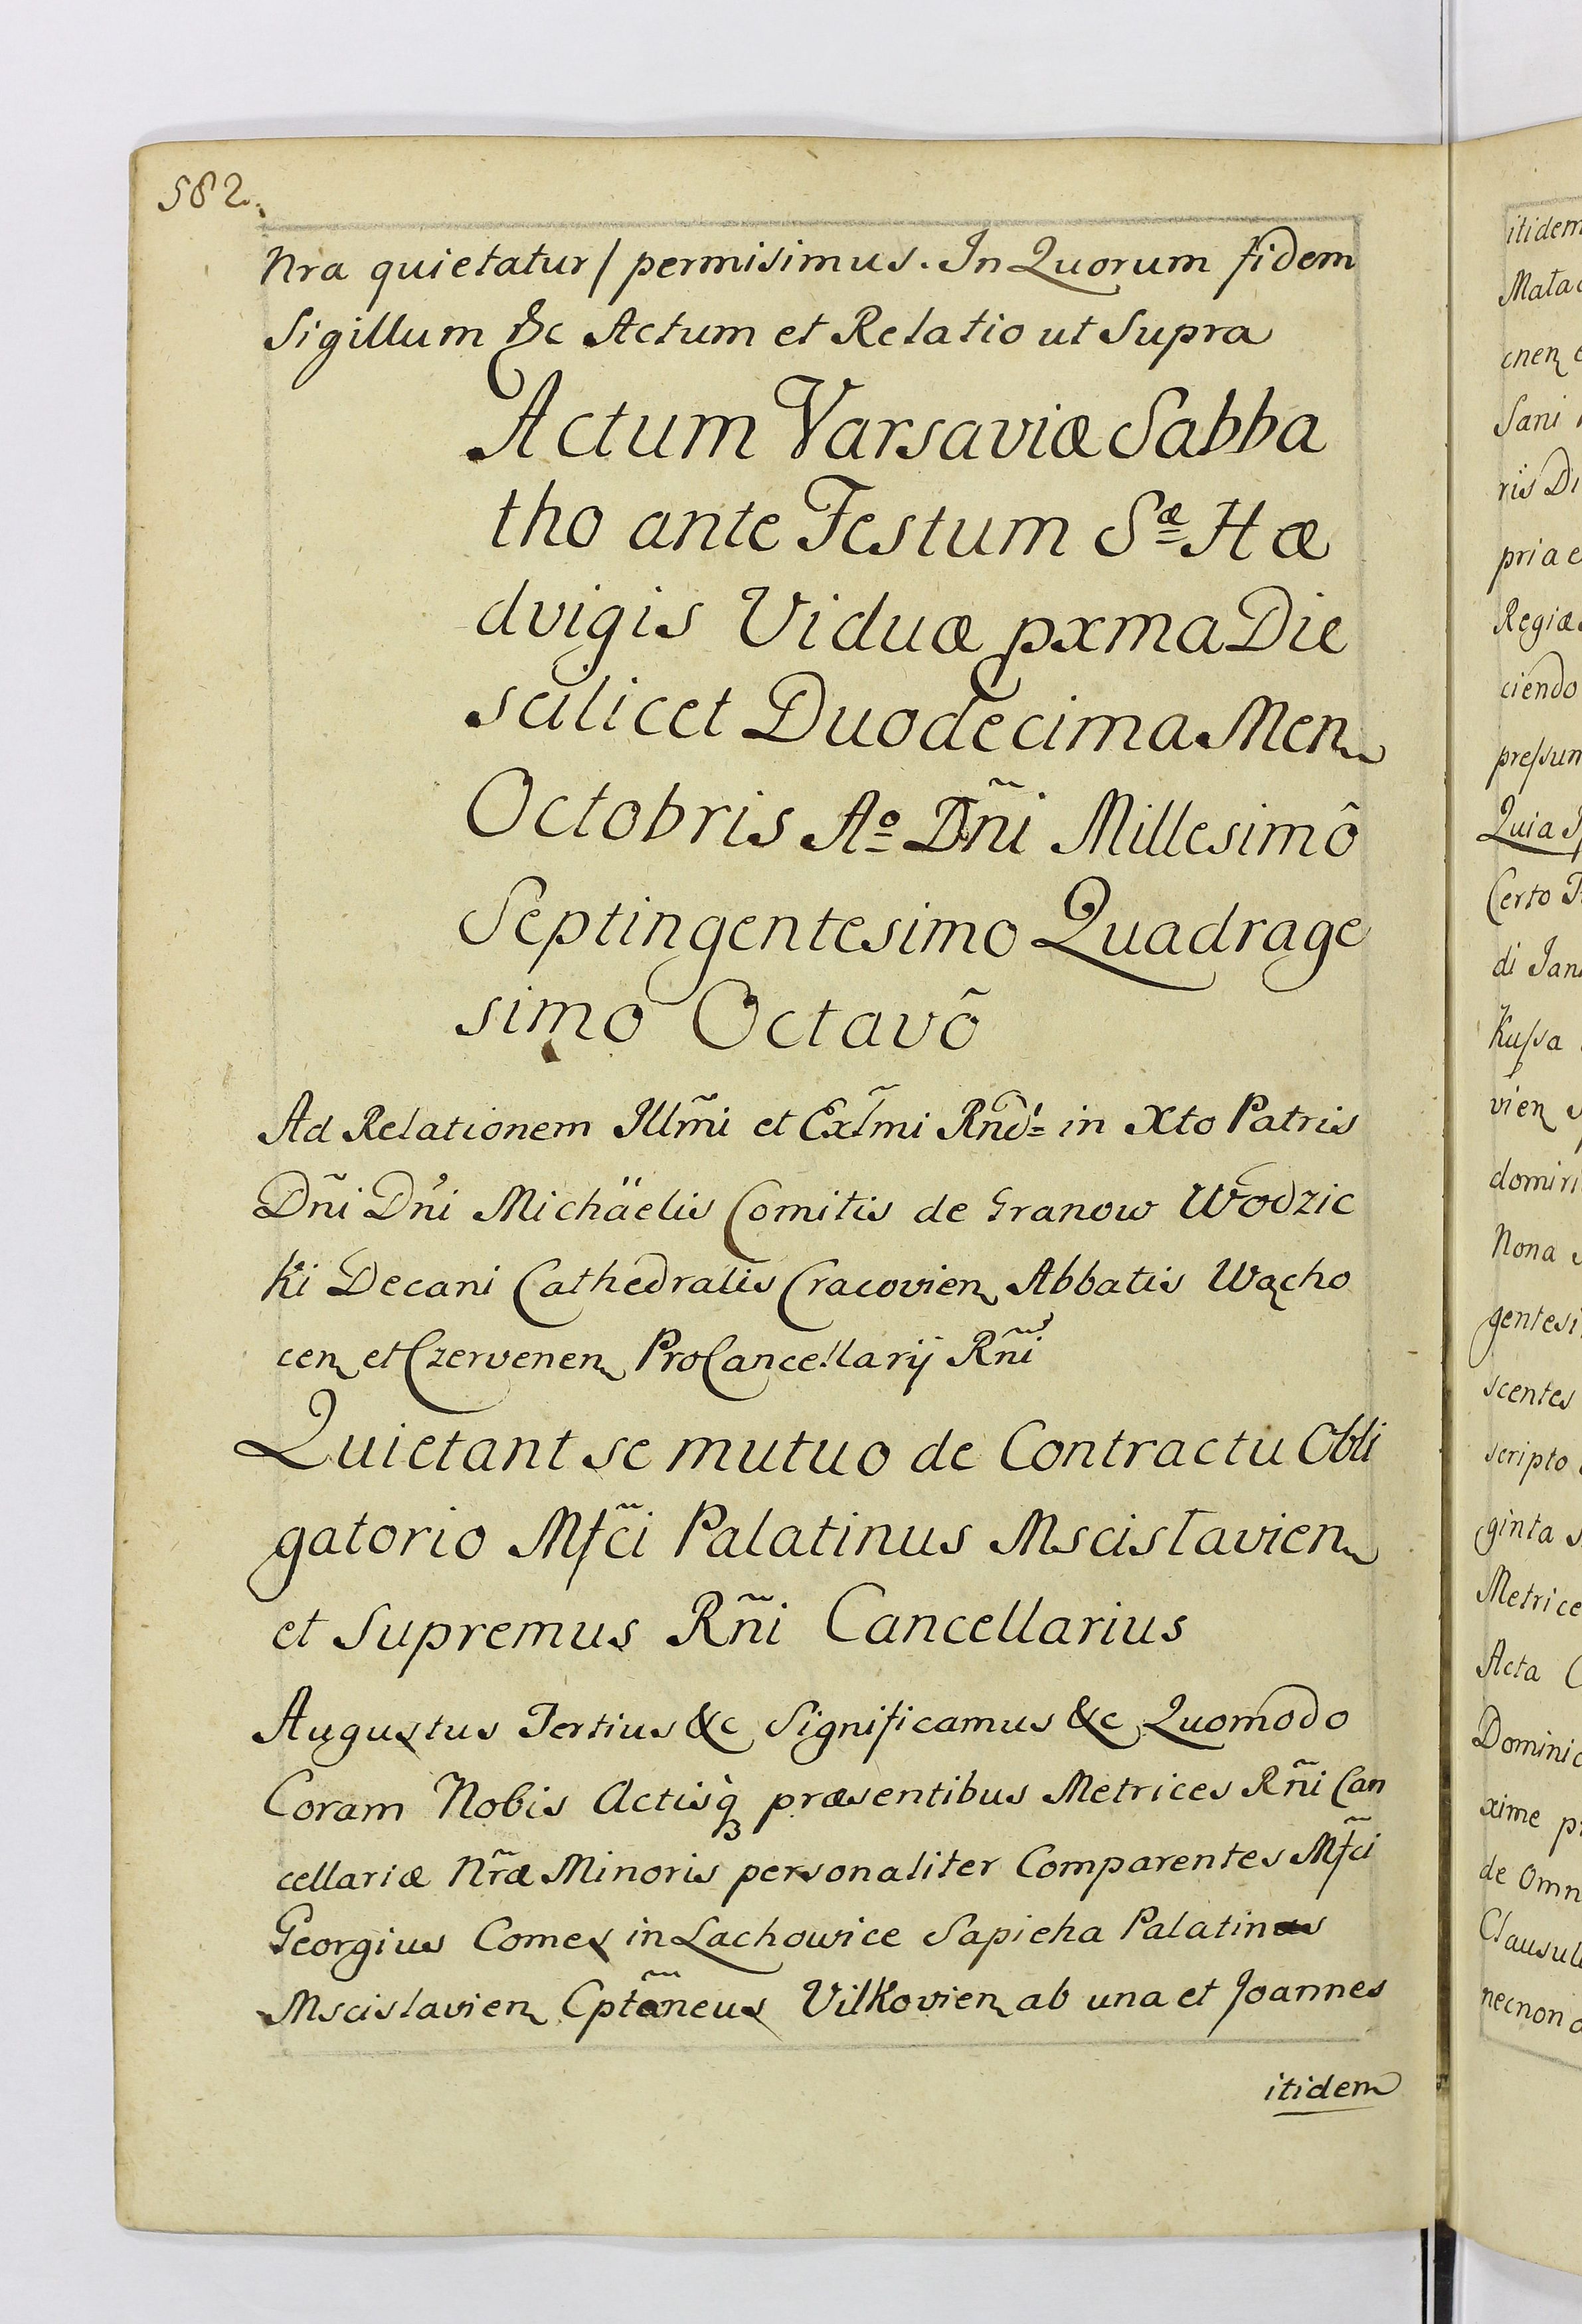 582.
Nra quietatur / permisimus. In Quorum fidem
Sigillum &c Actum et Relatio ut Supra
Actum Varsaviæ Sabba
tho ante Festum Sæ Hæ
dvigis Viduæ pxma Die
scilicet Duodecima Men
Octobris Ao Dñi Millesimô
Septingentesimo Quadrage
simo Octavô
Ad Relationem Illm̃i et Exl̃mi Rnd̃i in Xto Patris
Dñi Dñi Michäelis Comitis de Granow Wodzic
ki Decani Cathedralis Cracovien Abbatis Wącho
cen et Czervenen ProCancellarij Rñi
Quietant se mutuo de Contractu Obli
gatorio Mfc̃i Palatinus Mscislavien
et Supremus Rñi Cancellarius
Augustus Tertius &c Significamus &c Quomodo
Coram Nobis Actisq̀ præsentibus Metrices Rñi Can
cellariæ Nr̃æ Minoris personaliter Comparentes Mfc̃i
Georgius Comes in Lachowice Sapieha Palatinus
Mscislavien Cptãneus Vilkovien ab una et Joannes
itidem
itidem
cnen
Sani
ris Di
pria e
Regiæ
ciendo
pressun
Quia
Certo
di Jan
Kussa
vien
domini
Nona
gentesi
scentes
scripto
ginta
Metrice
Acta
Dominic
xime
de Omn
Clausul
necnon